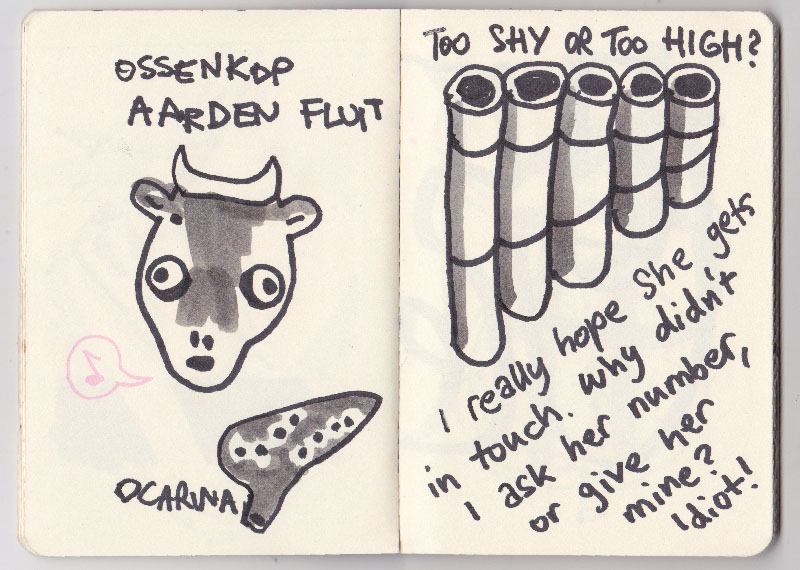 OSSENKOP
AARDEN FLUIT
OCARINA
TOO SHY OR TOO HIGH?
I really hope she gets
in touch. why didn't
I ask her number,
or give her
mine?
Idiot!